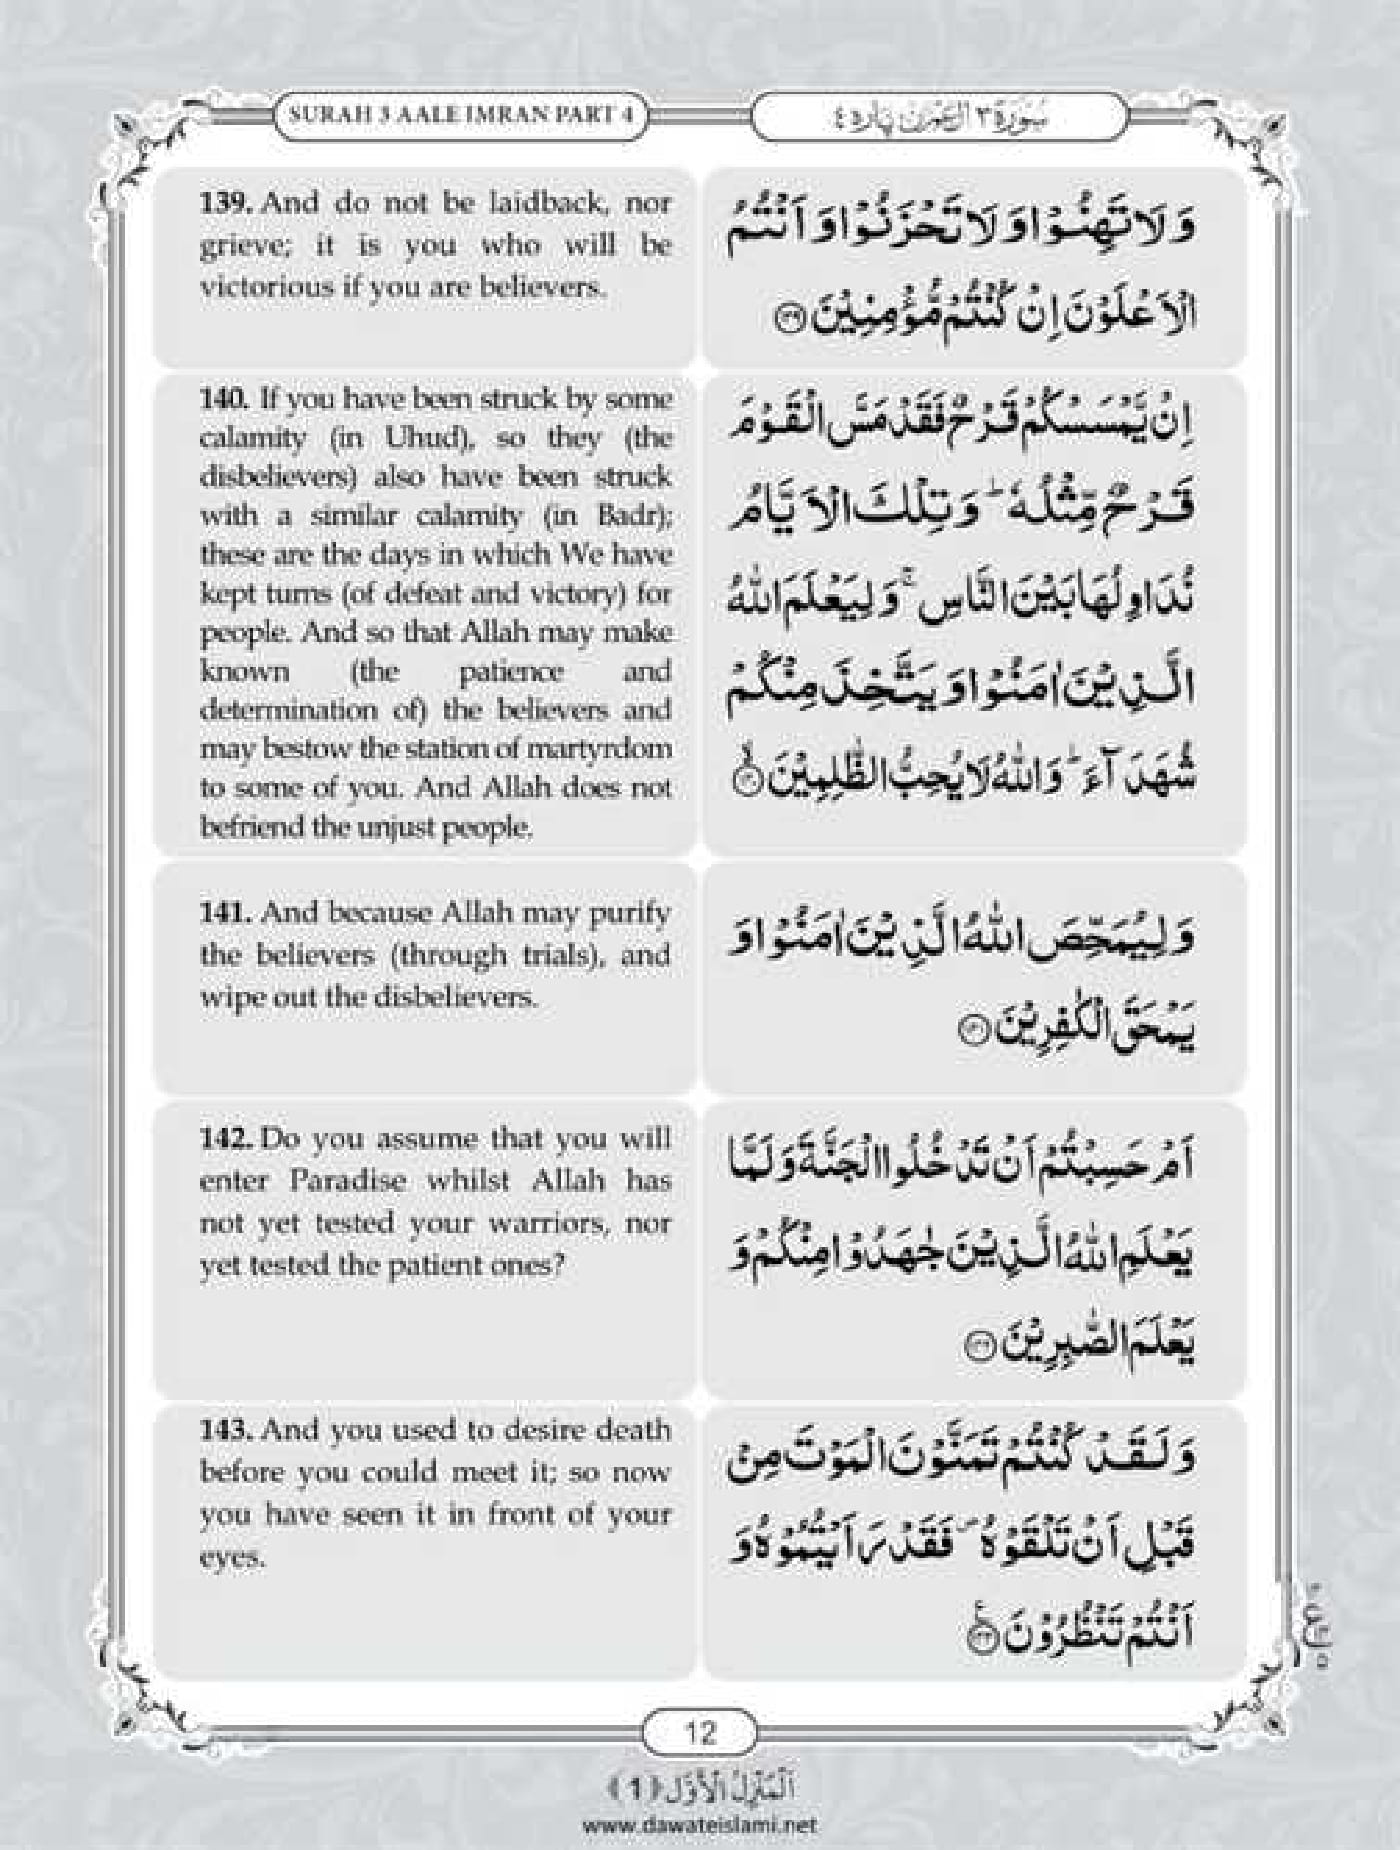 SURAH 3 AALE IMRAN PART 4
سُوْرَةُ ٣ اٰلِ عِمْرٰن پاره ٤
139. And do not be laidback, nor
grieve; it is you who will be
victorious if you are believers.
وَ لَا تَهِنُوْا وَ لَا تَحْزَنُوْا وَ اَنْتُمُ
الْاَعْلَوْنَ اِنْ كُنْتُمْ مُّؤْمِنِیْنَ ﴿۱۳۹﴾
140. If you have been struck by some
calamity (in Uhud), so they (the
disbelievers) also have been struck
with a similar calamity (in Badr);
these are the days in which We have
kept turns (of defeat and victory) for
people. And so that Allah may make
known (the patience and
determination of) the believers and
may bestow the station of martyrdom
to some of you. And Allah does not
befriend the unjust people.
اِنْ یَّمْسَسْكُمْ قَرْحٌ فَقَدْ مَسَّ الْقَوْمَ
قَرْحٌ مِّثْلُهٗ ؕ وَ تِلْكَ الْاَیَّامُ
نُدَاوِلُهَا بَیْنَ النَّاسِ ۚ وَ لِیَعْلَمَ اللّٰهُ
الَّذِیْنَ اٰمَنُوْا وَ یَتَّخِذَ مِنْكُمْ
شُهَدَآءَ ؕ وَ اللّٰهُ لَا یُحِبُّ الظّٰلِمِیْنَ ﴿۱۴۰﴾ۙ
141. And because Allah may purify
the believers (through trials), and
wipe out the disbelievers.
وَ لِیُمَحِّصَ اللّٰهُ الَّذِیْنَ اٰمَنُوْا وَ
یَمْحَقَ الْكٰفِرِیْنَ ﴿۱۴۱﴾
142. Do you assume that you will
enter Paradise whilst Allah has
not yet tested your warriors, nor
yet tested the patient ones?
اَمْ حَسِبْتُمْ اَنْ تَدْخُلُوا الْجَنَّةَ وَ لَمَّا
یَعْلَمِ اللّٰهُ الَّذِیْنَ جٰهَدُوْا مِنْكُمْ وَ
یَعْلَمَ الصّٰبِرِیْنَ ﴿۱۴۲﴾
143. And you used to desire death
before you could meet it; so now
you have seen it in front of your
eyes.
وَ لَقَدْ كُنْتُمْ تَمَنَّوْنَ الْمَوْتَ مِنْ
قَبْلِ اَنْ تَلْقَوْهُ ۪ فَقَدْ رَاَیْتُمُوْهُ وَ
اَنْتُمْ تَنْظُرُوْنَ ﴿۱۴۳﴾
12
اَلْمَنْزِلُ الْاَوَّل (1)
www.dawateislami.net